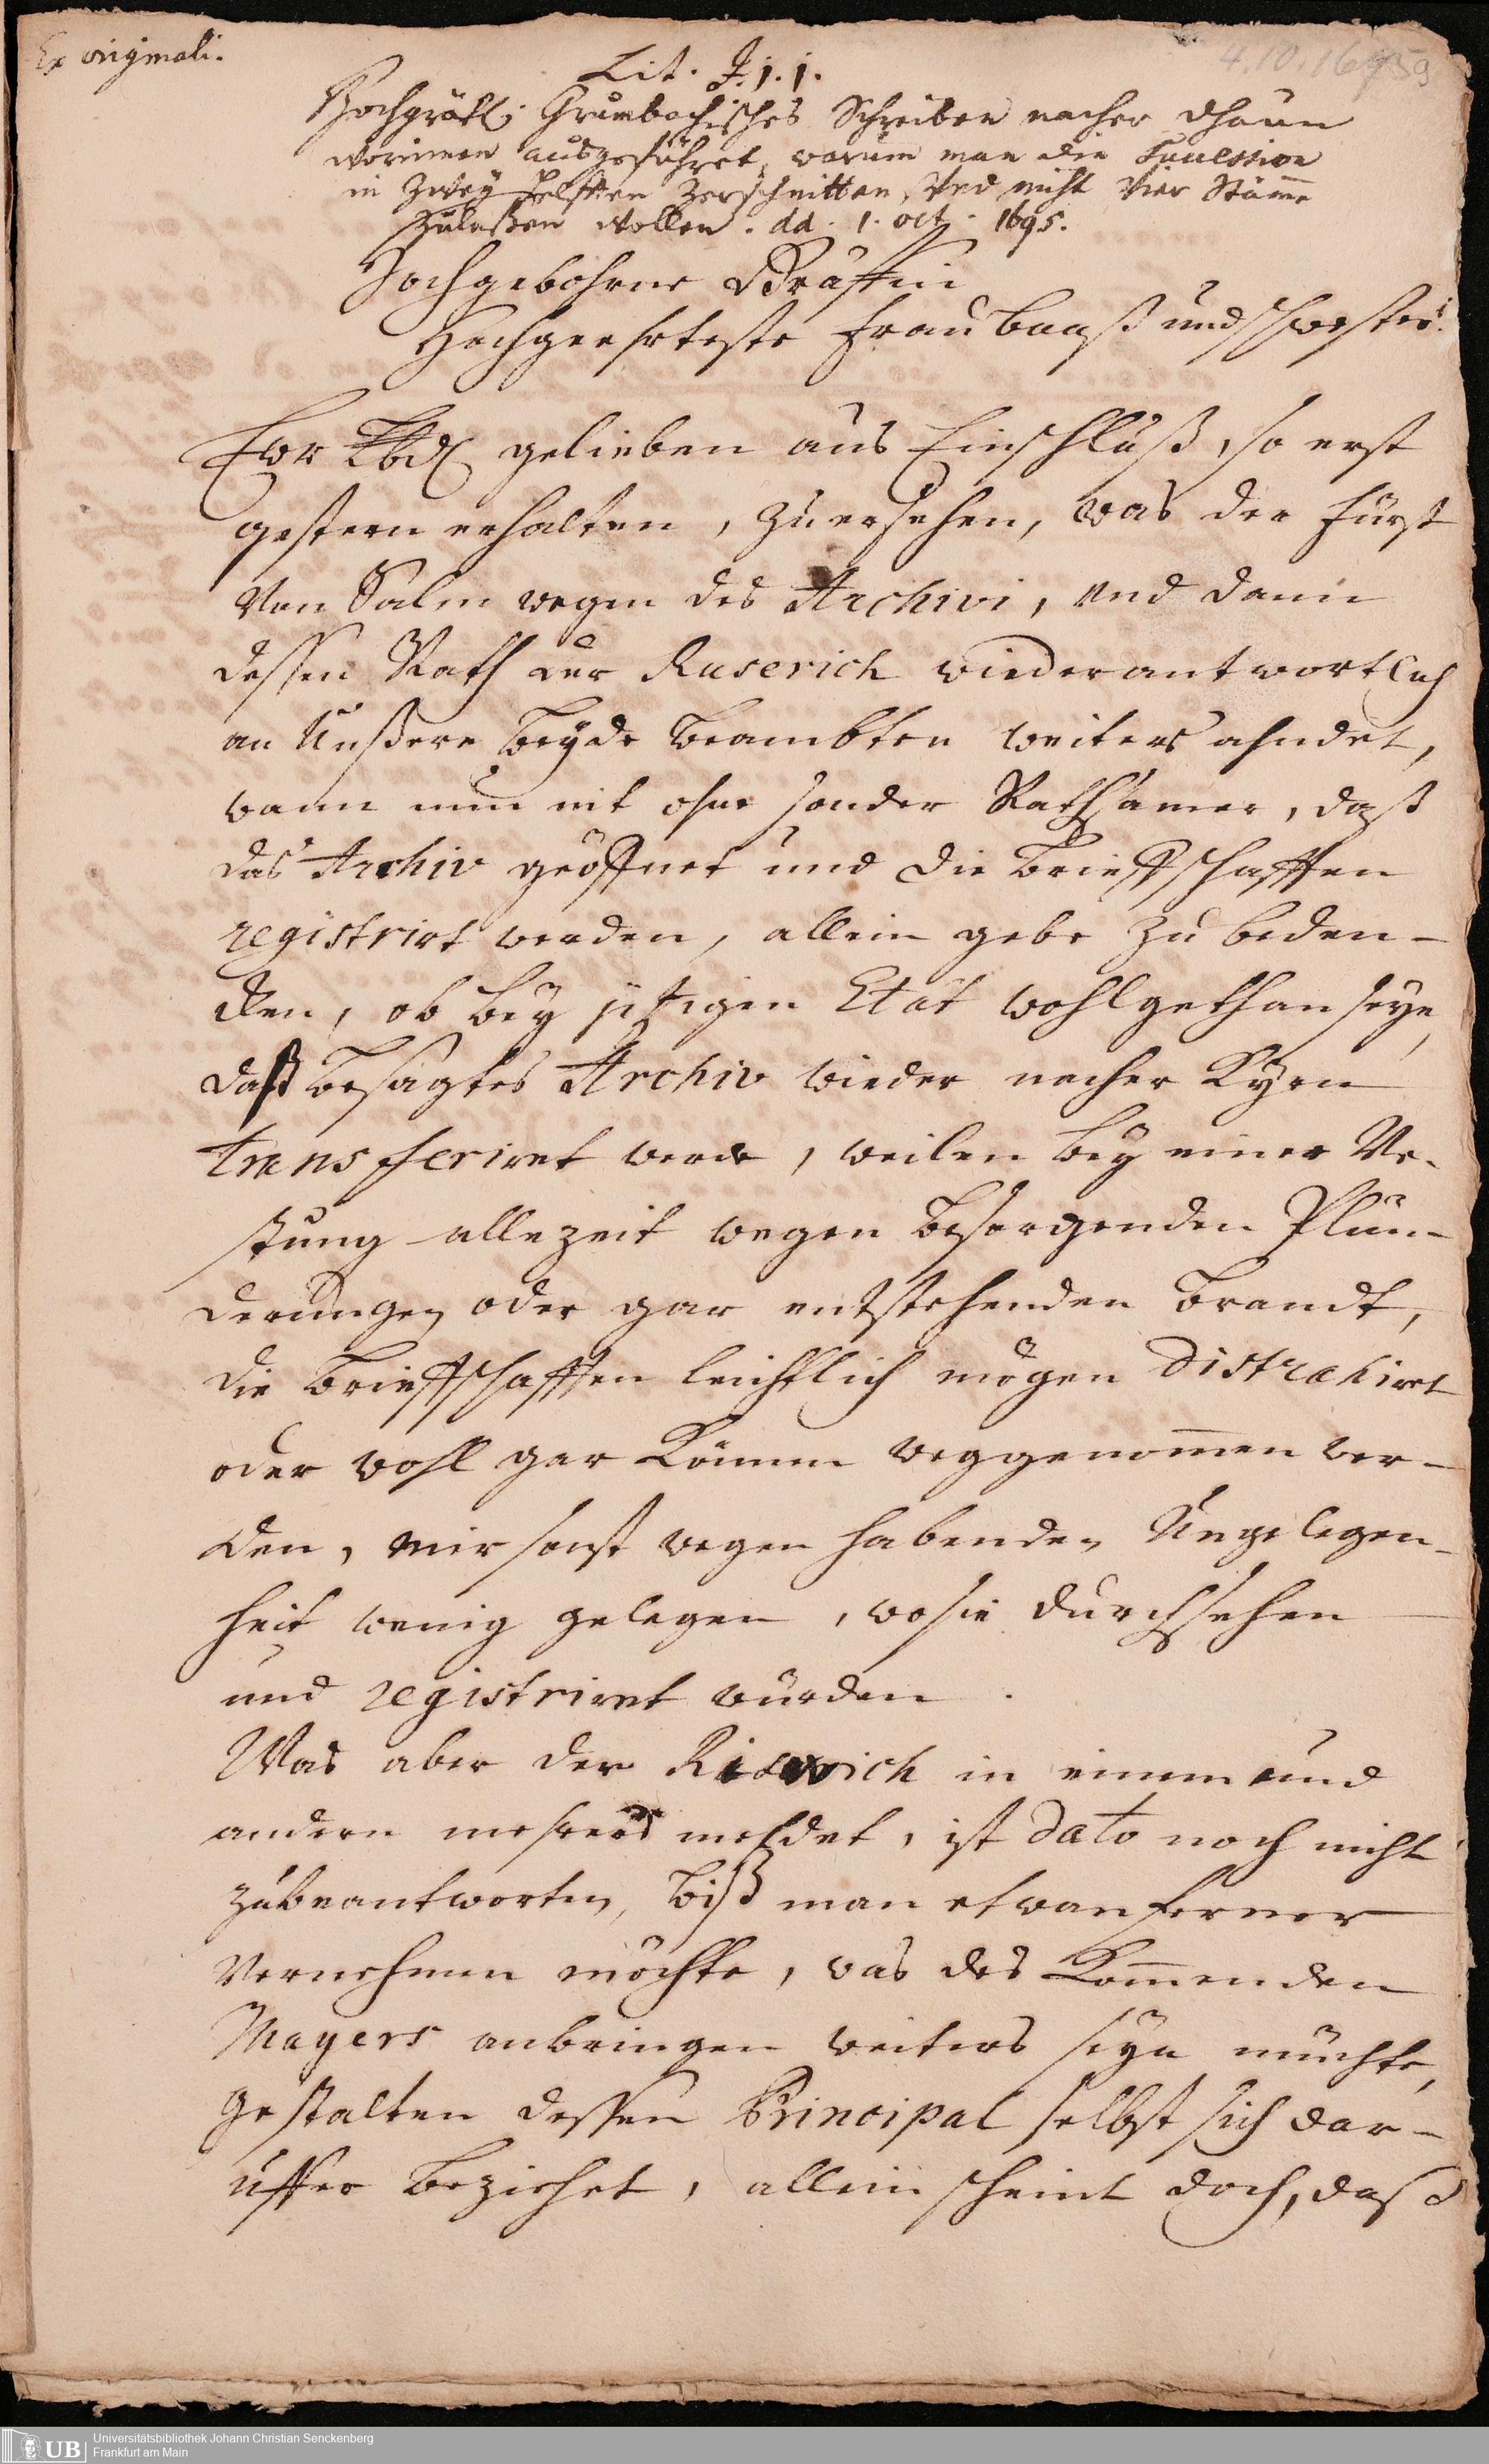 Ex originali.
4.10.1695
Lit. J.j.j.
Hochgräfl. Grumbachisches Schreiben nacher Dhaun
worinnen ausgeführet, warum man die Succession
in zwey helfften zerschnitten, Und nicht vier Stäme
zulaßen wollen. dd. 1. oct. 1695.
Hochgebohrne Gräffin
Hochgeehrteste Frau Baaß und Schwester.
Ewr Lbd. gelieben aus Einschluß, so erst
gestern erhalten, zuersehen, was der Fürst
Von Salm wegen des Archivi, und dann
dessen Rath der Ruserich wiederantwortlich
an Unßere beyde Beambten weiters ahndet,
wann nun nit ohne sonder Rathsamer, daß
das Archiv geöffnet und die Brieffschafften
registrirt werden, allein gebe zu beden-
cken, ob bey jetzigen Etat wohlgethan seye,
daß besagtes Archiv wieder nacher Kyrn
transferiret werde, weilen bey einer Ve-
stung allezeit wegen besorgenden Plün-
derungen oder gar entstehenden Brandt,
die Brieffschafften leichtlich mögen distrahiret
oder wohl gar können weggenomen wer-
den, mir sonst wegen habenden Ungelegen-
heit wenig gelegen, wo sie durchsehen
und registriret würden.
Was aber der Riserich in einem und
andern mehrers meldet, ist dato noch nicht
zubeantworten, biß man etwan ferner
vernehmen möchte, was des Komenden
Mayers anbringen weiters seyn möchte,
gestalten dessen Principal selbst sich dar-
uffer beziehet, allein scheint doch, daß
UB
Universitätsbibliothek Johann Christian Senckenberg
Frankfurt am Main